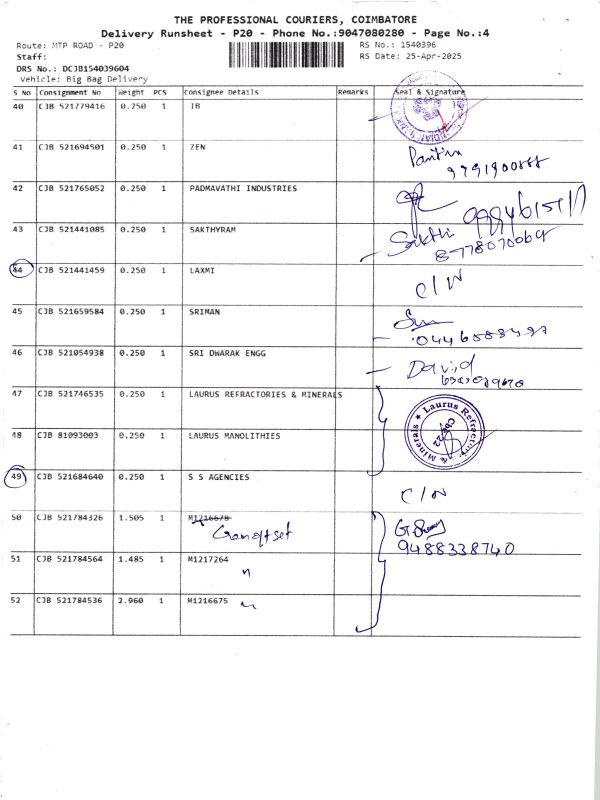 THE PROFESSIONAL COURIERS, COIMBATORE
Delivery Runsheet - P20 - Phone No.:9047080280 - Page No.:4
Route: MTP ROAD - P20 RS No.: 1540396
Staff: RS Date: 25-Apr-2025
DRS No.: DCJB154039604
Vehicle: Big Bag Delivery
S No Consignment No Weight PCS Consignee Details Remarks Seal & Signature
40 CJB 521779416 0.250 1 IB
41 CJB 521694501 0.250 1 ZEN
42 CJB 521765052 0.250 1 PADMAVATHI INDUSTRIES
43 CJB 521441085 0.250 1 SAKTHYRAM Sakthi
8778070069
44 CJB 521441459 0.250 1 LAXMI C/N
45 CJB 521659584 0.250 1 SRIMAN
46 CJB 521054938 0.250 1 SRI DWARAK ENGG David
47 CJB 521746535 0.250 1 LAURUS REFRACTORIES & MINERALS
Laurus Refractory & Minerals ★
CBE-22
48 CJB 81093003 0.250 1 LAURUS MANOLITHIES
49 CJB 521684640 0.250 1 S S AGENCIES C/N
50 CJB 521784326 1.505 1 M1216678
9488338740
51 CJB 521784564 1.485 1 M1217264 "
52 CJB 521784536 2.960 1 M1216675 "